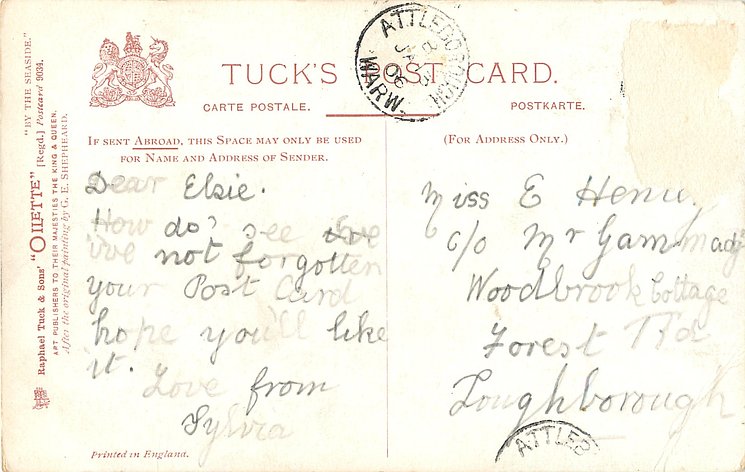 "BY THE SEASIDE."
Raphael Tuck & Sons' "OILETTE" [Regd.] Postcard 9034.
ART PUBLISHERS TO THEIR MAJESTIES THE KING & QUEEN.
After the original painting by G. E. SHEPHEARD.
TUCK'S POST CARD.
CARTE POSTALE.
POSTKARTE.
ATTLEBOROUGH
JA
06
WARW.
IF SENT ABROAD, THIS SPACE MAY ONLY BE USED
FOR NAME AND ADDRESS OF SENDER.
Dear Elsie.
How do? see
ive not forgotten
your Post Card
hope you'll like
it. Love from
Sylvia
(FOR ADDRESS ONLY.)
Miss E
c/o Mr
Woodbrook Cottage
Forest Rd
Loughborough
ATTLEB
Printed in England.